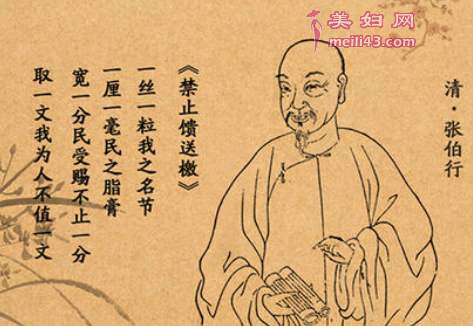 美妇网
meili43.com
清·张伯行
《禁止馈送檄》
一丝一粒我之名节
一厘一毫民之脂膏
宽一分民受赐不止一分
取一文我为人不值一文